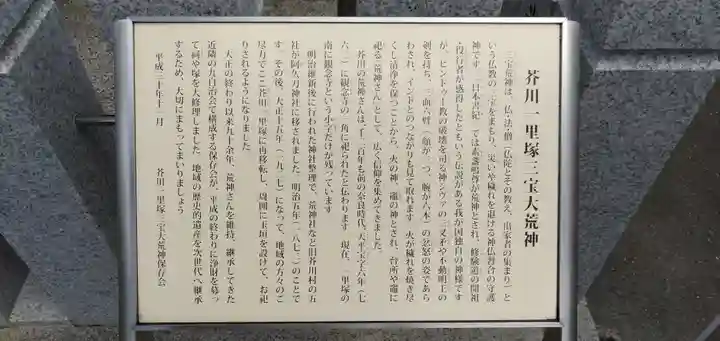 芥川一里塚三宝大荒神
三宝荒神は、仏・法・僧(仏陀とその教え、出家者の集まり)と
いう仏教の三宝をまもり、災いや穢れを退ける神仏習合の守護
神です。日本書紀では素盞嗚尊が荒神とされ、修験道の開祖
・役行者が感得したともいう伝説がある我が国独自の神様です
が、ヒンドゥー教の破壊を司る神シヴァの三叉矛や不動明王の
剣を持ち、三面八臂(顔が三つ、腕が八本)の忿怒の姿であら
わされ、インドとのつながりも見て取れます。火が穢れを焼き尽
くし清浄を保つことから、火の神、竈の神とされ、台所や竈に
祀る「荒神さん」として、広く信仰を集めてきました。
芥川の荒神さんは、千二百年も前の奈良時代、天平宝字六年(七
六二)に観念寺の一角に祀られたと伝わります。現在、一里塚の
南に観念寺という小字だけが残っています。
明治維新後に行われた神社整理で、荒神社など旧芥川村の五
社が阿久刀神社に移されました。明治五年(一八七二)のことで
す。その後、大正十五年(一九二七)になって、地域の方々のご
尽力でここ芥川一里塚に再移転し、周囲に玉垣を設けて、お祀
りされるようになりました。
大正の終わり以来九十余年、荒神さんを維持、継承してきた
近隣の九自治会で構成する保存会が、平成の終わりに浄財を募っ
て祠や塚を大修理しました。地域の歴史的遺産を次世代へ継承
するため、大切にまもってまいりましょう。
平成三十年十一月
芥川一里塚三宝大荒神保存会